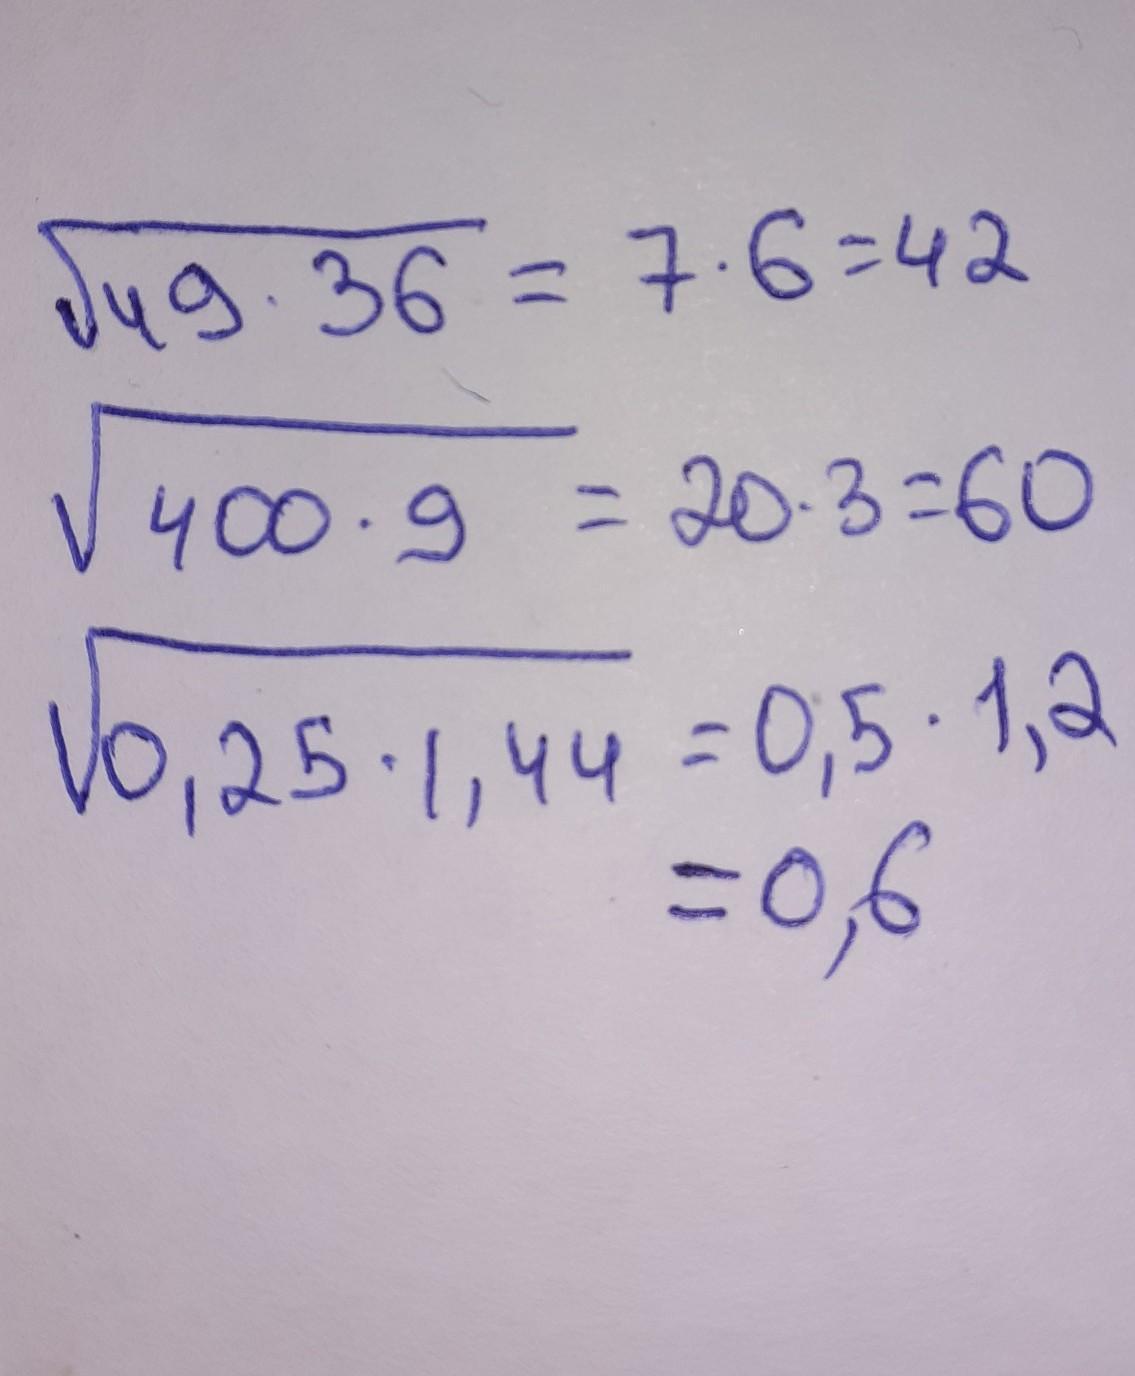 √49·36 = 7·6=42
√400·9 = 20·3=60
√0,25·1,44 = 0,5·1,2
=0,6